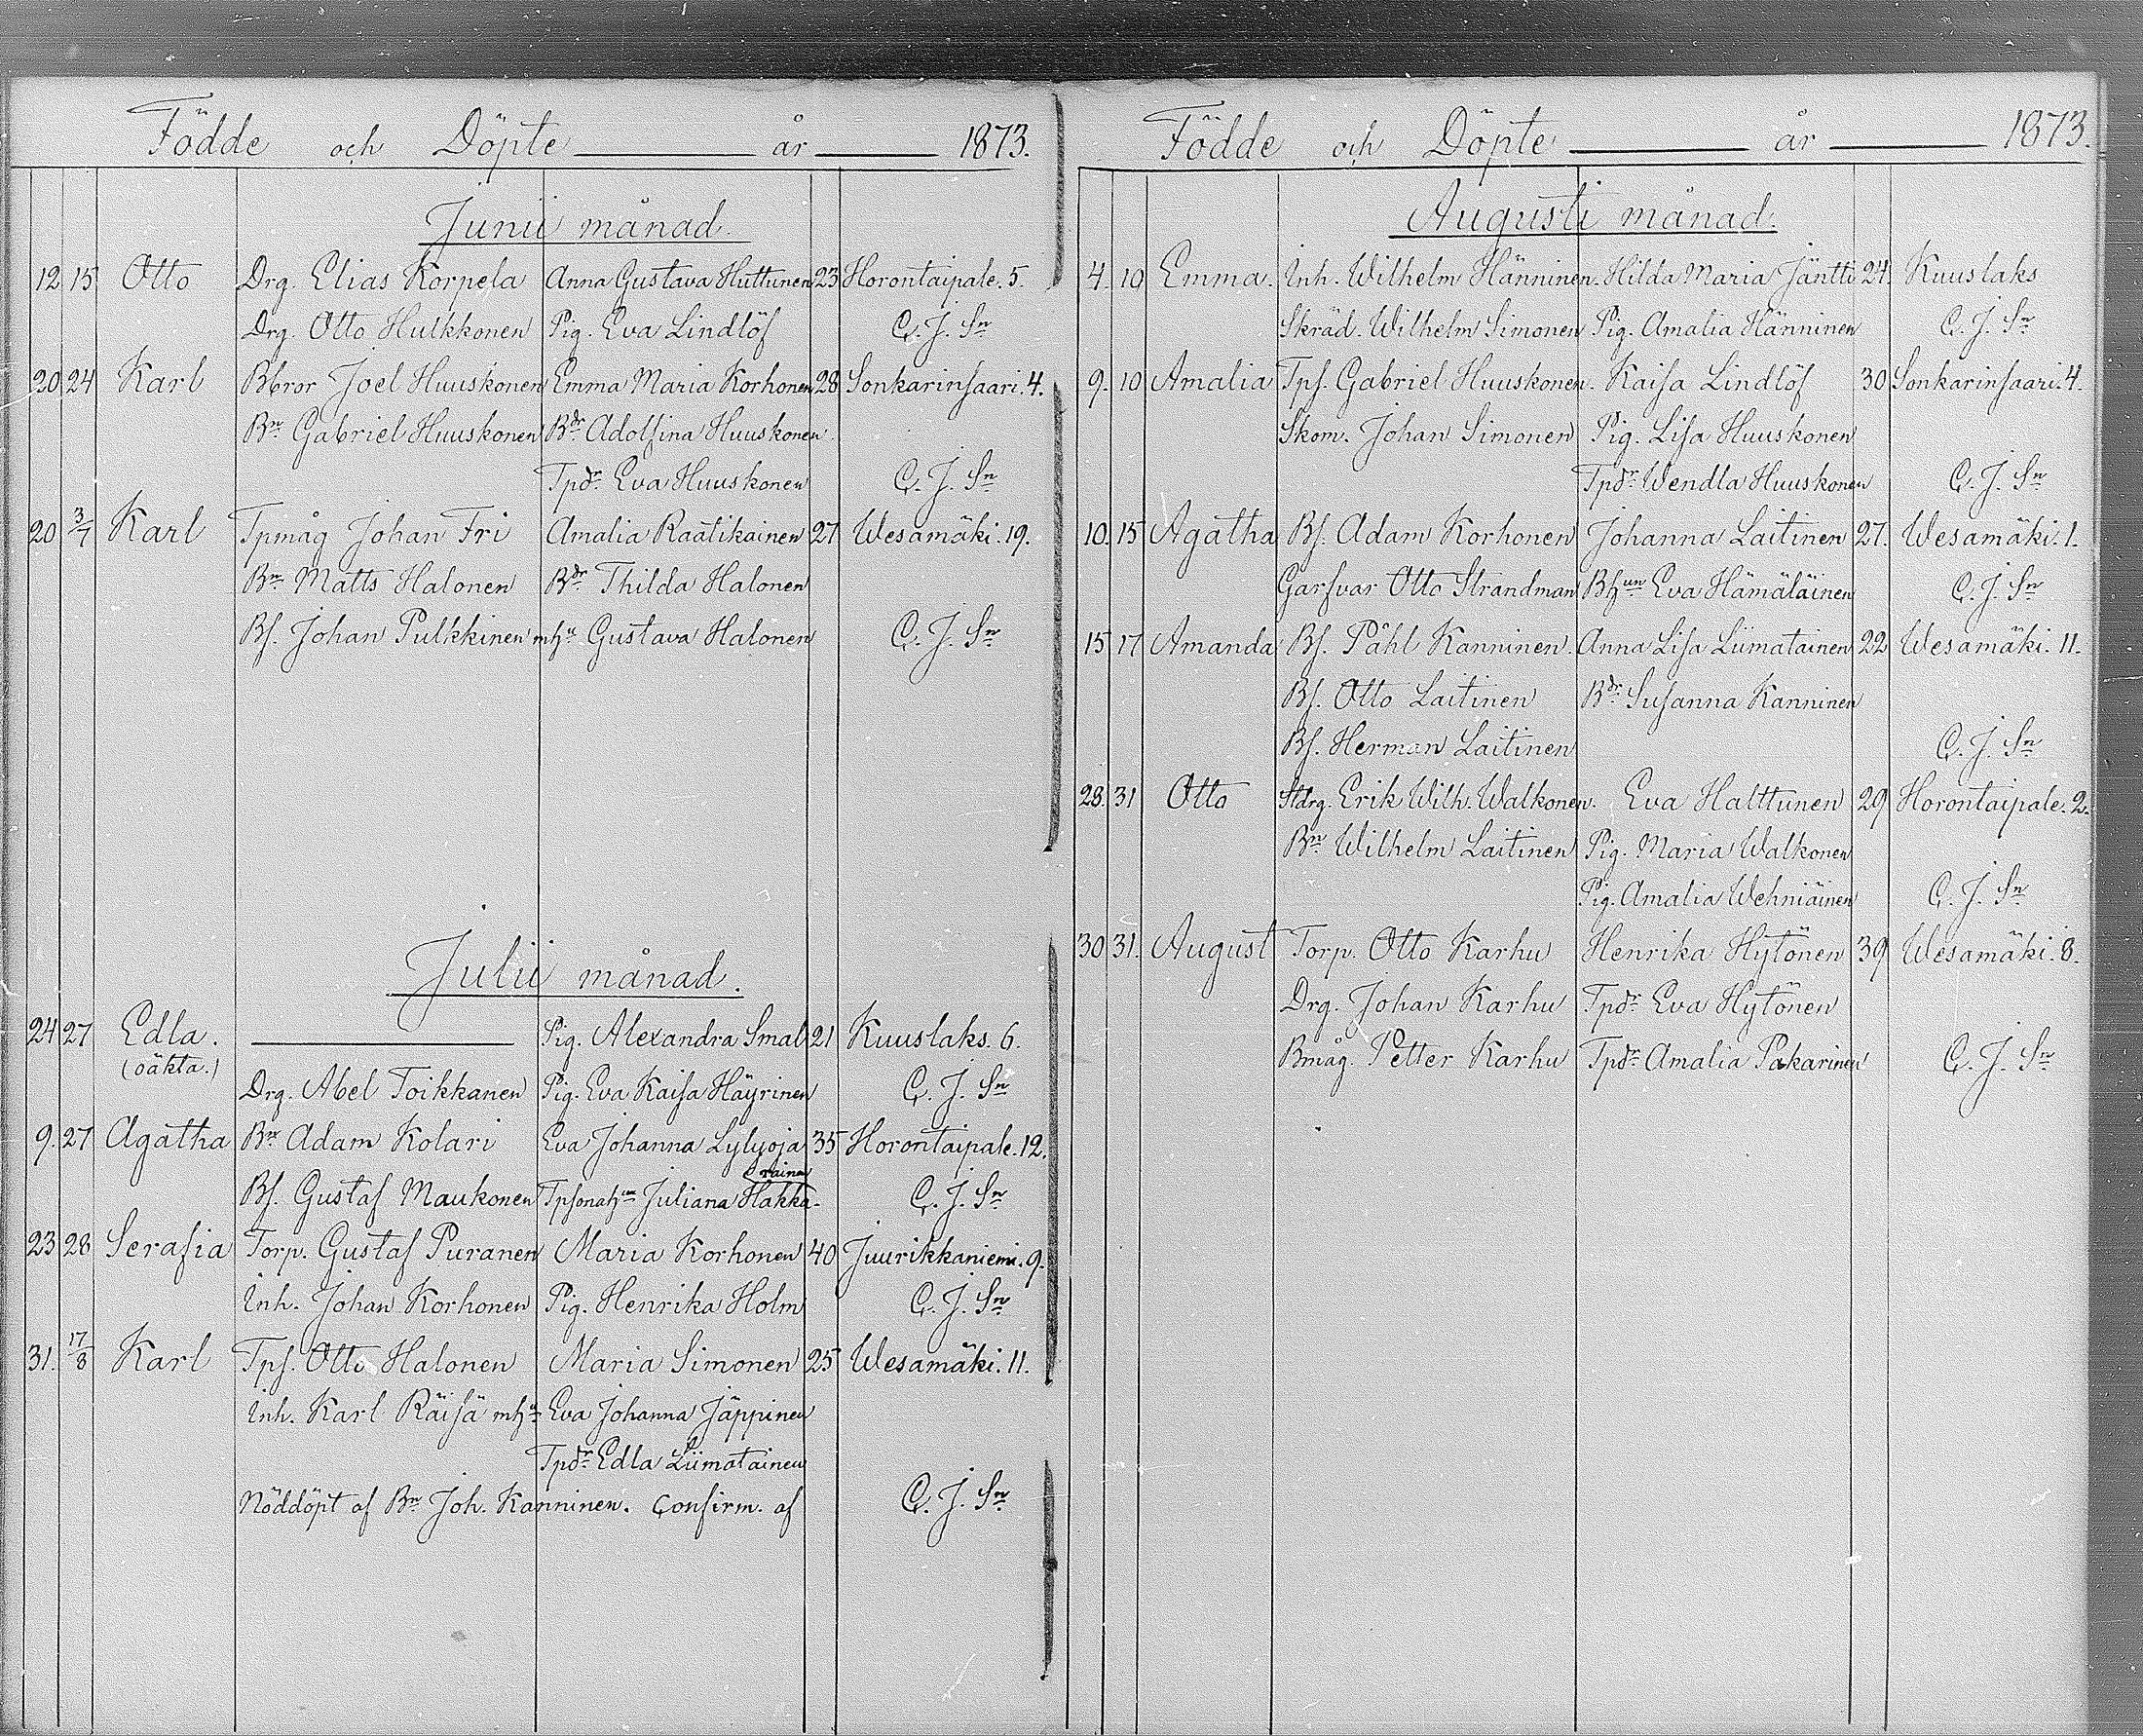 Födde och Döpte år 1873.
Junii månad.
12 15 Otto Drg. Elias Korpela Anna Gustava Huttunen 23 Horontaipale. 5.
Drg. Otto Hulkkonen Pig. Eva Lindlöf C. J. Sn
20 24 Karl Bbror Joel Huuskonen Emma Maria Korhonen 28 Sonkarinsaari. 4.
Bn Gabriel Huuskonen Bdr Adolfina Huuskonen
Tpdr Eva Huuskonen C. J. Sn
20 3/7 Karl Tpmåg Johan Fri Amalia Raatikainen 27 Wesamäki. 19.
Bn Matts Halonen Bdr Thilda Halonen
Bs. Johan Pulkkinen mhu Gustava Halonen C. J. Sn
Julii månad.
24 27 Edla. Pig. Alexandra Smal 21 Kuuslaks. 6.
(oäkta.)
Drg. Abel Toikkanen Pig. Eva Kaisa Häyrinen C. J. Sn
9. 27 Agatha Bn Adam Kolari Eva Johanna Lylyoja 35 Horontaipale. 12.
Bs. Gustaf Maukonen Juliana Hakka- rainen C. J. Sn
23 28 Serafia Torp. Gustaf Puranen Maria Korhonen 40 Juurikkaniemi. 9.
Inh. Johan Korhonen Pig. Henrika Holm C. J. Sn
31. 17/8 Karl Tps. Otto Halonen Maria Simonen 25 Wesamäki. 11.
Inh. Karl Räisä mhu Eva Johanna Jäppinen
Tpdr Edla Liimatainen
Nöddöpt af Bn Joh. Kanninen. Confirm. af C. J. Sn
Födde och Döpte år 1873.
Augusti månad.
4. 10 Emma. Inh. Wilhelm Hänninen. Hilda Maria Jäntti 24. Kuuslaks
Skräd. Wilhelm Simonen Pig. Amalia Hänninen C. J. Sn
9. 10 Amalia Tps. Gabriel Huuskonen. Kaisa Lindlöf 30 Sonkarinsaari. 4.
Skom. Johan Simonen Pig. Lisa Huuskonen
Tpdr Wendla Huuskonen C. J. Sn
10. 15 Agatha Bs. Adam Korhonen Johanna Laitinen 27. Wesamäki. 1.
Garfvar Otto Strandman Bhun Eva Hämäläinen C. J. Sn
15 17 Amanda Bs. Påhl Kanninen. Anna Lisa Liimatainen 22 Wesamäki. 11.
Bs. Otto Laitinen Bdr Susanna Kanninen
Bs. Herman Laitinen C. J. Sn
28. 31 Otto Stdrg. Erik Wilh. Walkonen. Eva Halttunen 29 Horontaipale. 2.
Bn Wilhelm Laitinen Pig. Maria Walkonen
Pig. Amalia Wehniäinen C. J. Sn
30 31. August Torp. Otto Karhu Henrika Hytönen 39 Wesamäki. 8.
Drg. Johan Karhu Tpdr Eva Hytönen
Bmåg. Petter Karhu Tpdr Amalia Pakarinen C. J. Sn